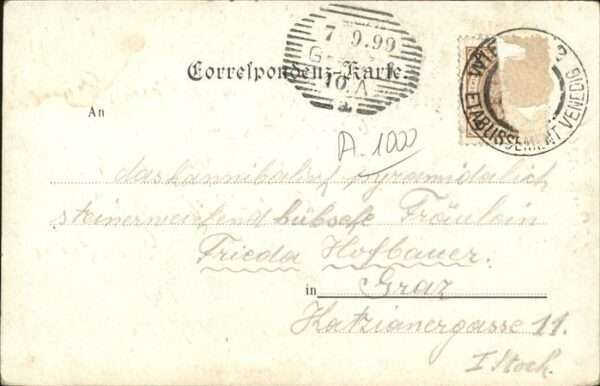 7 9.99
G
10 A
a
WIE
ETABLISSEMENT VENEDIG
Correspondenz-Karte.
An
A-1000
das kannibalisch pyramidalisch
steinerweichend hübsche Fräulein
Frieda Hofbauer.
in Graz
Katzianergasse 11.
I Stock.